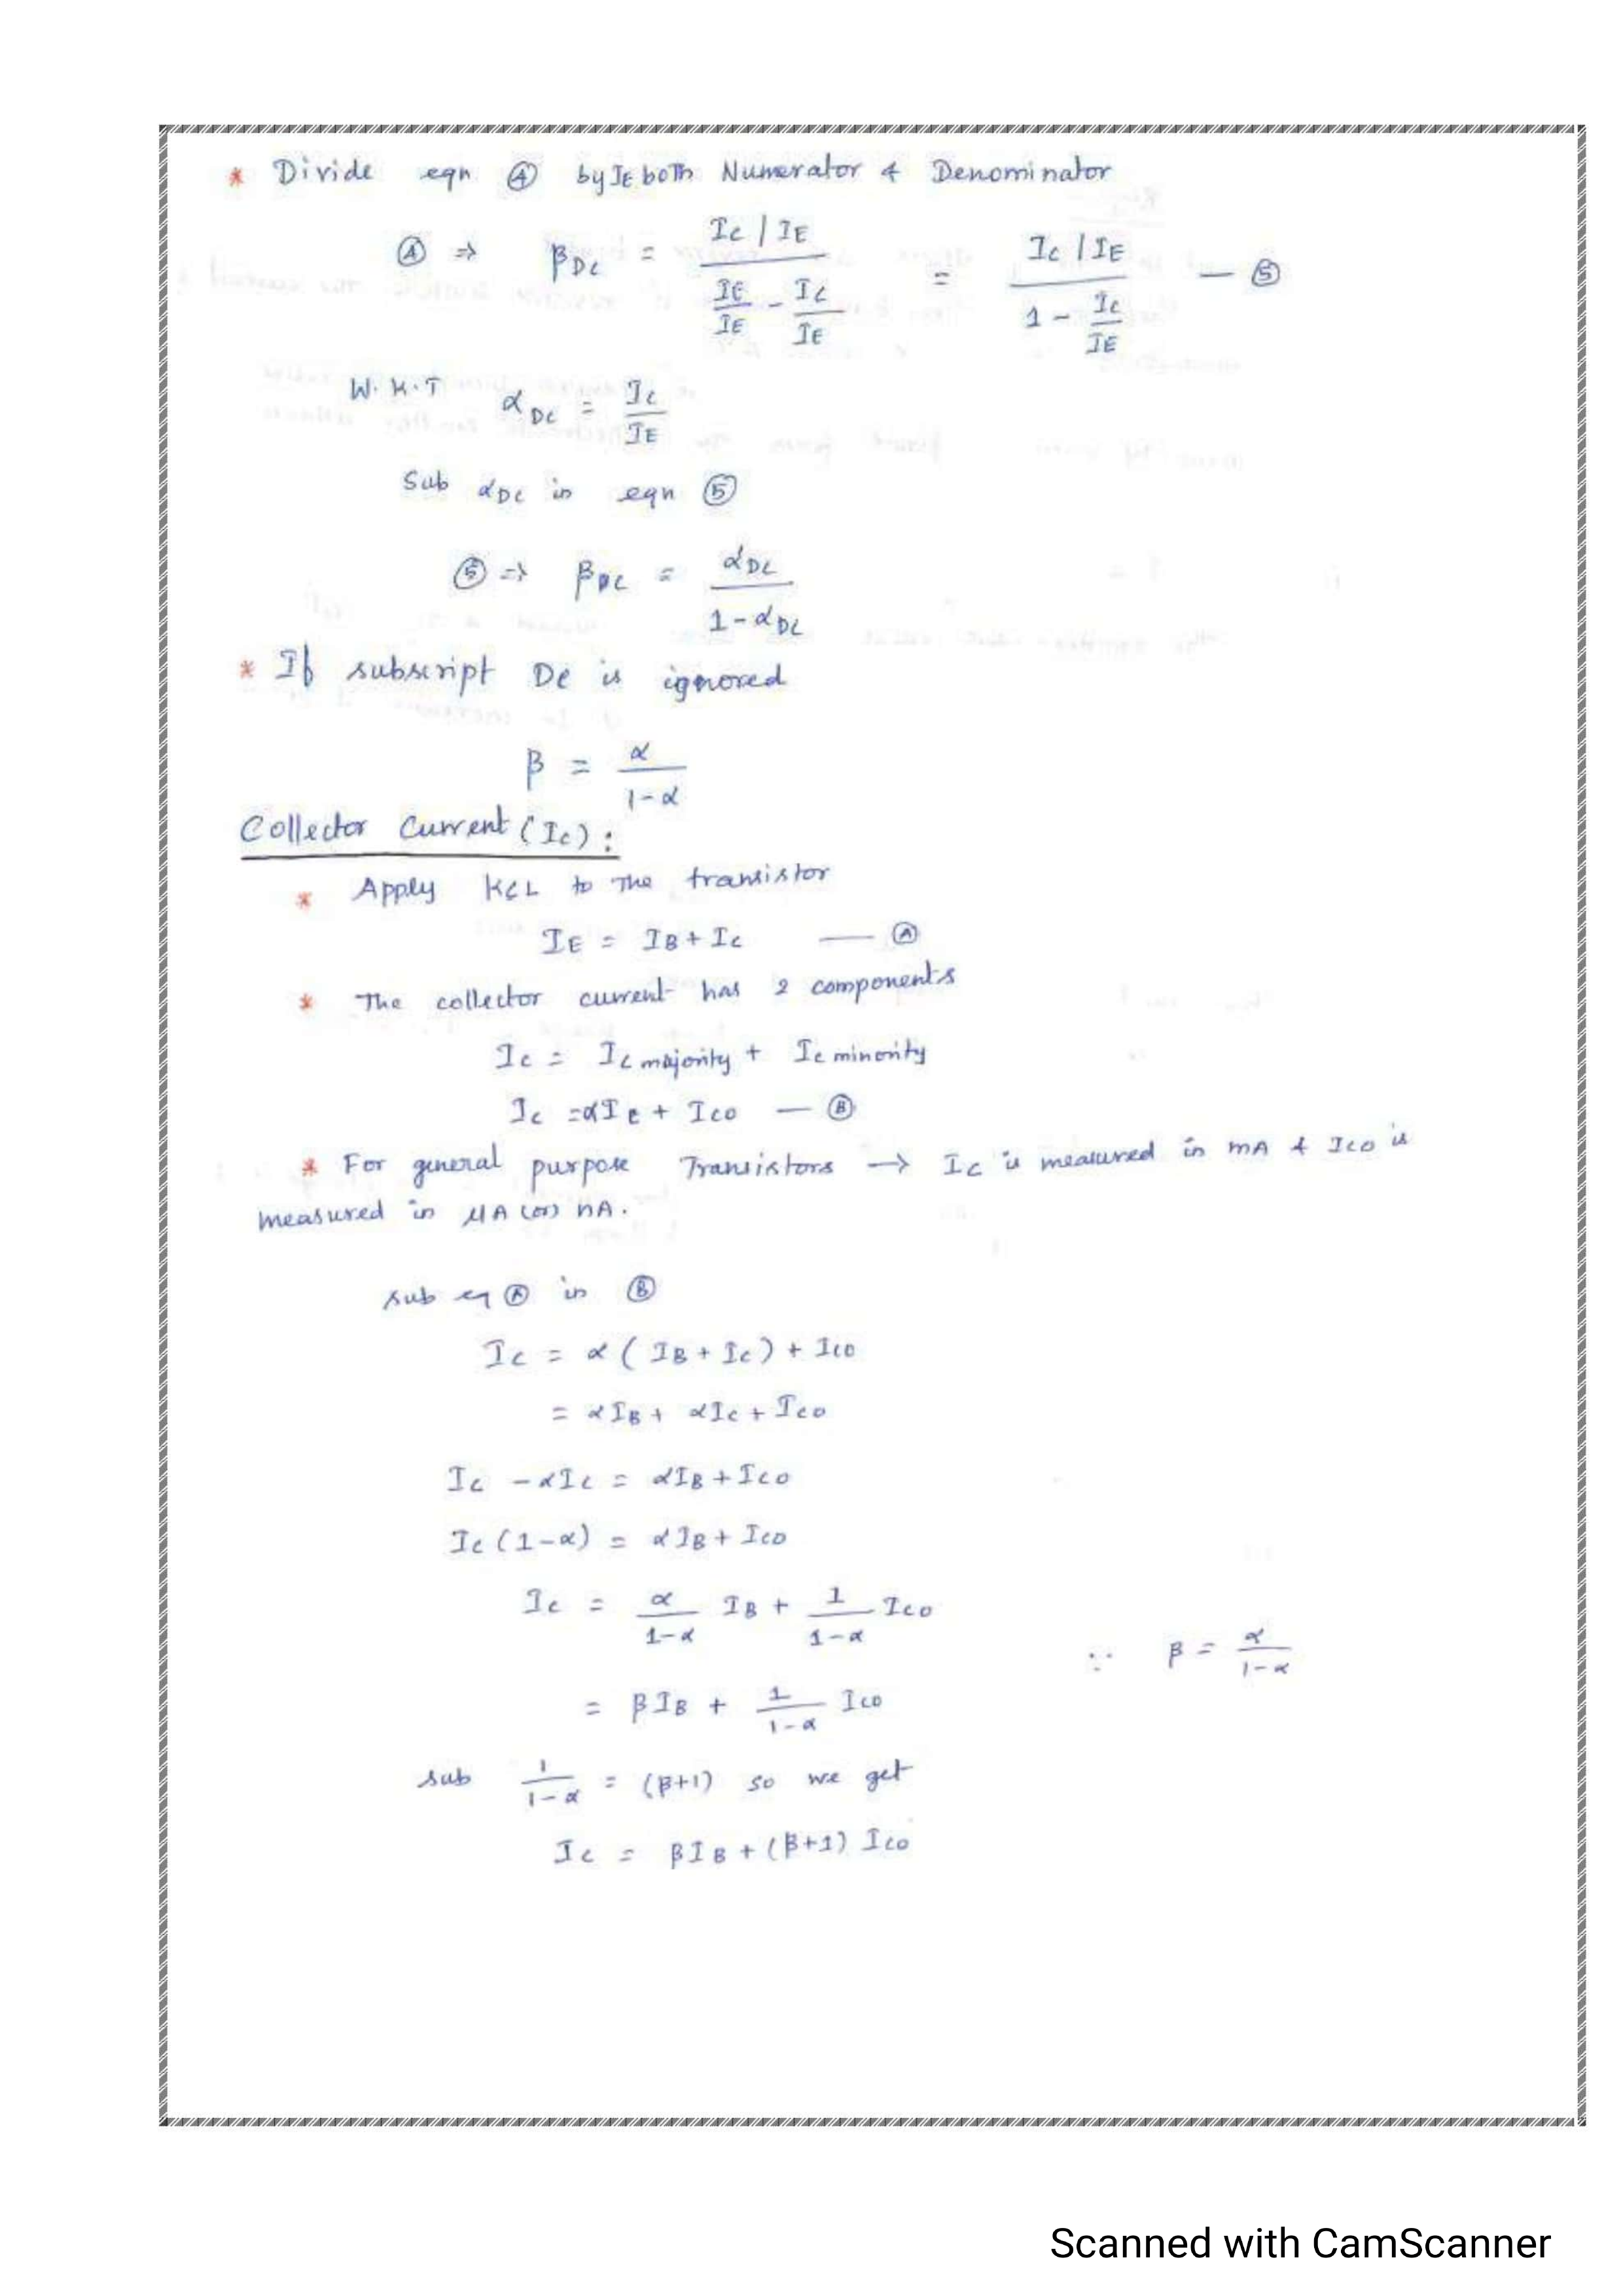 * Divide eqn ④ by IE both Numerator & Denominator
④ ⇒ βDC = (IC / IE) / (IE/IE - IC/IE) = (IC / IE) / (1 - IC/IE) — ⑤
W.K.T αDC = IC/IE
Sub αDC in eqn ⑤
⑤ ⇒ βDC = αDC / (1-αDC)
* If subscript DC is ignored
β = α / (1-α)
Collector Current (IC) :
* Apply KCL to The transistor
IE = IB + IC — Ⓐ
* The collector current has 2 components
IC = IC majority + IC minority
IC = αIE + ICO — Ⓑ
* For general purpose Transistors → IC is measured in mA & ICO is
measured in μA (or) nA.
sub eq Ⓐ in Ⓑ
IC = α ( IB + IC ) + ICO
= αIB + αIC + ICO
IC - αIC = αIB + ICO
IC (1-α) = αIB + ICO
IC = α/(1-α) IB + 1/(1-α) ICO
∵ β = α/(1-α)
= βIB + 1/(1-α) ICO
sub 1/(1-α) = (β+1) so we get
IC = βIB + (β+1) ICO
Scanned with CamScanner